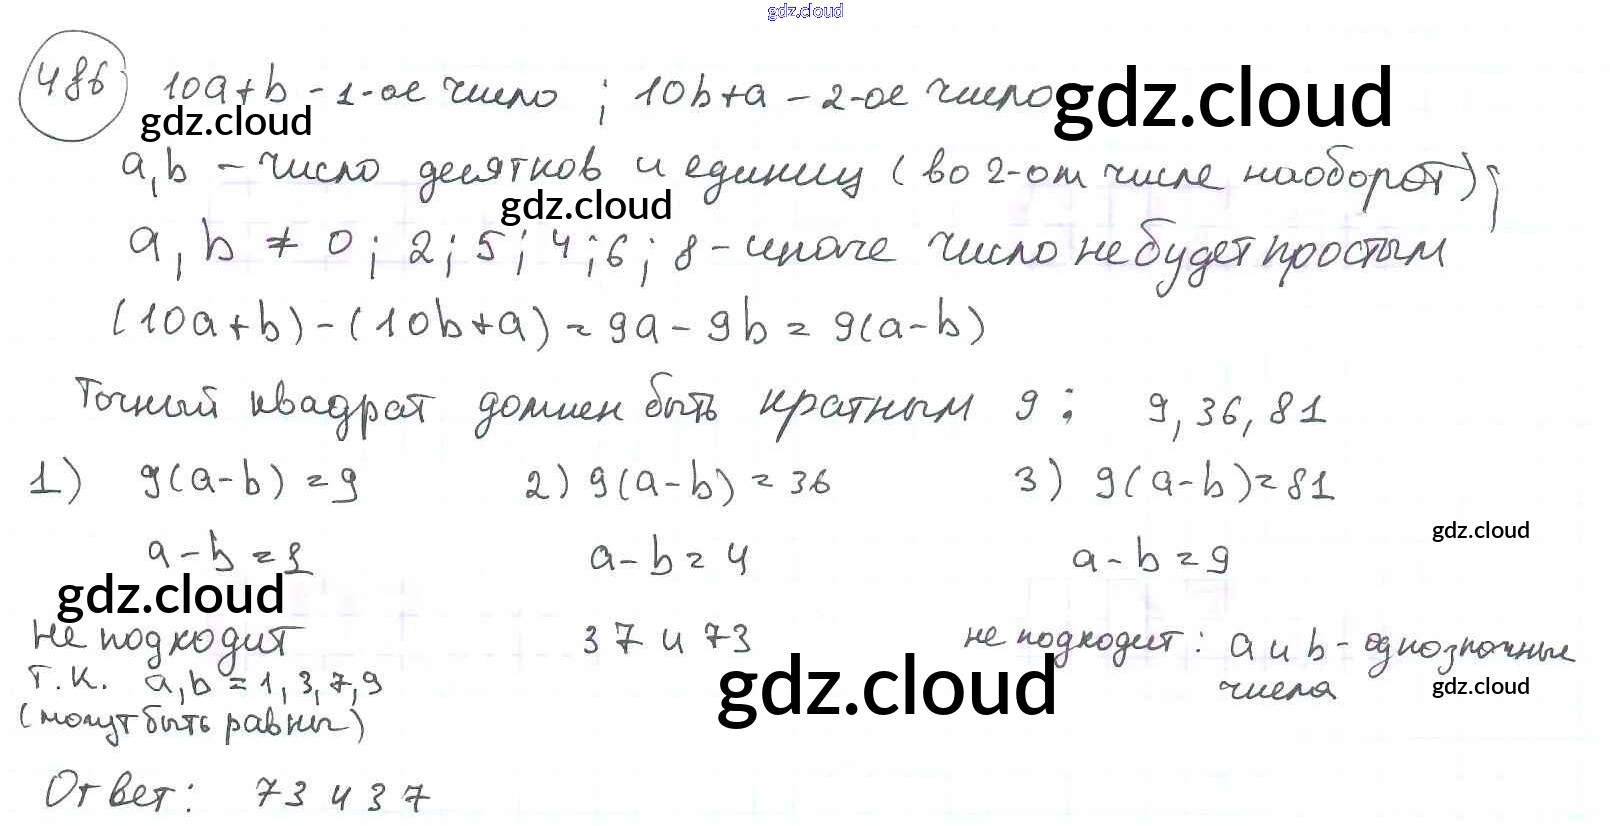 gdz.cloud
486 10a+b - 1-ое число ; 10b+a - 2-ое число
gdz.cloud
gdz.cloud
a, b - число десятков и единиц (во 2-ом числе наоборот);
gdz.cloud
a, b ≠ 0; 2; 5; 4; 6; 8 - иначе число не будет простым
(10a+b)-(10b+a) = 9a - 9b = 9(a-b)
Точный квадрат должен быть кратным 9: 9, 36, 81
1) 9(a-b) = 9 2) 9(a-b) = 36 3) 9(a-b) = 81
gdz.cloud
a-b = 1 a-b = 4 a-b = 9
gdz.cloud
не подходит 37 и 73 не подходит: a и b - однозначные
т.к. a, b = 1, 3, 7, 9 числа
gdz.cloud
gdz.cloud
(могут быть равны)
Ответ: 73 и 37